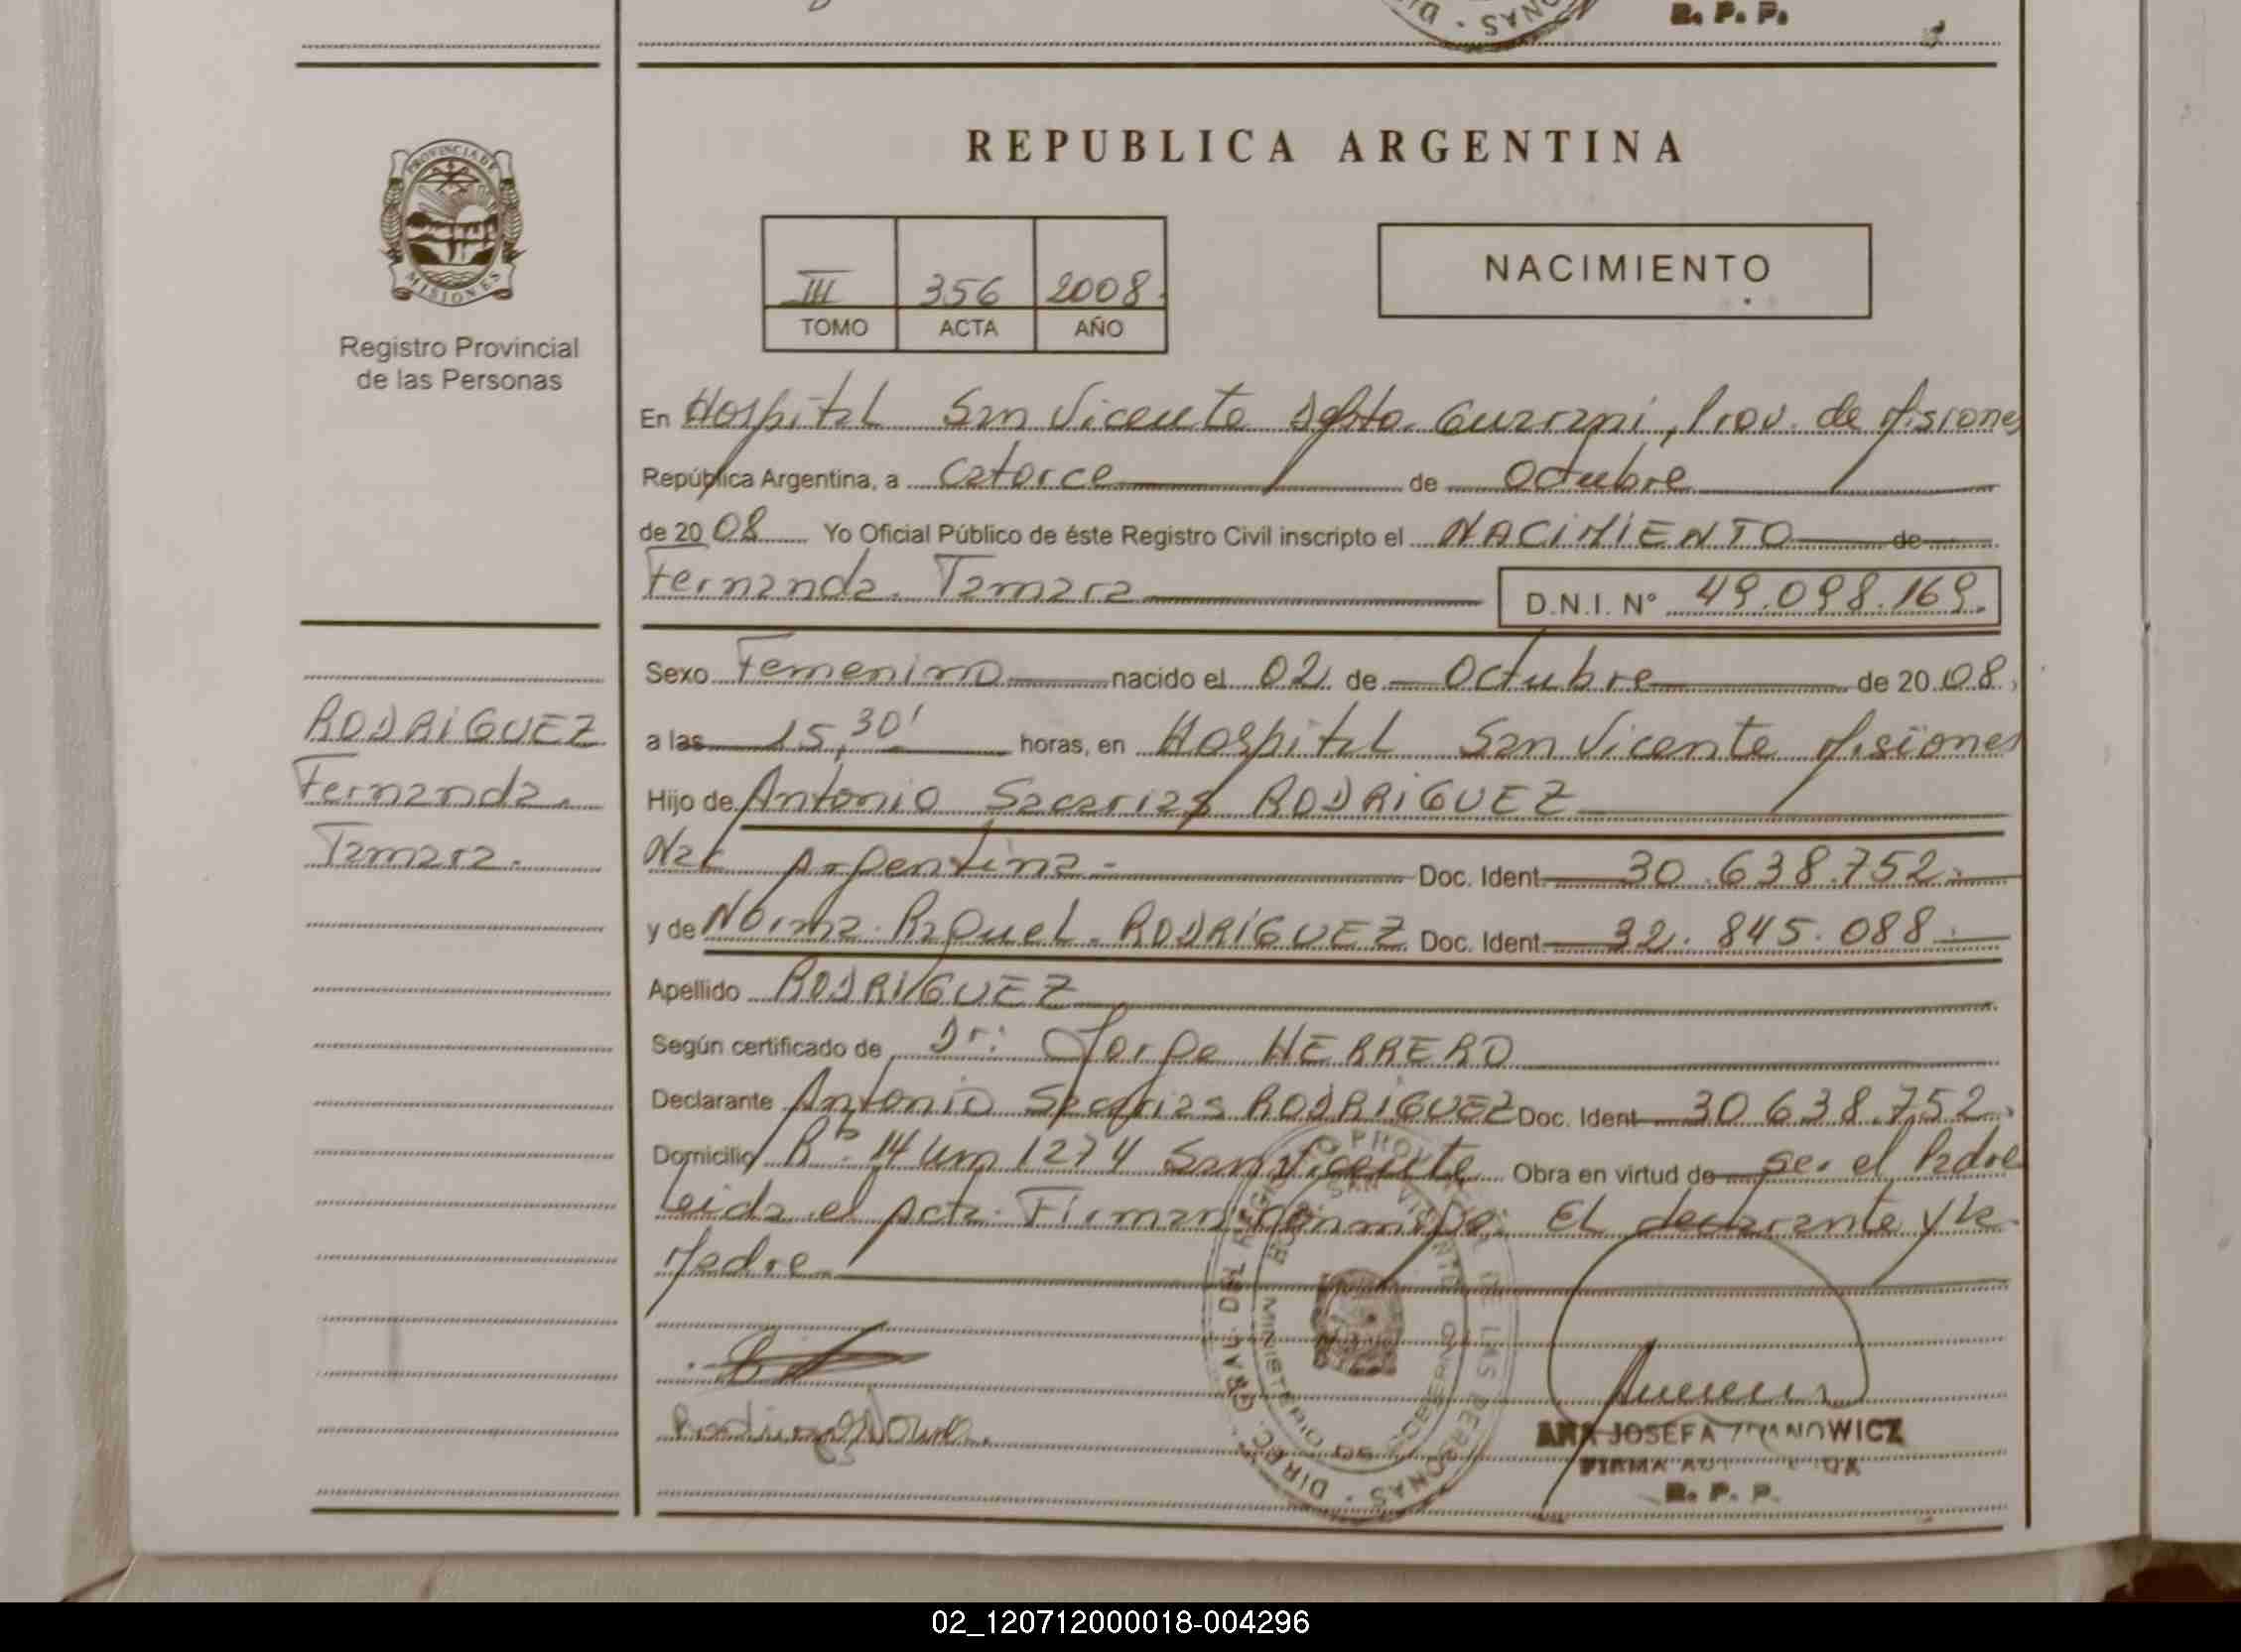 R. P. P.
REPUBLICA ARGENTINA
PROVINCIA DE
MISIONES
Registro Provincial
de las Personas
III 356 2008
TOMO ACTA AÑO
NACIMIENTO
En Hospital San Vicente Dpto. Guarani, Prov. de Misiones
República Argentina, a Catorce de Octubre
de 2008 Yo Oficial Público de éste Registro Civil inscripto el NACIMIENTO de
Fernanda. Tamara D.N.I. N° 49.098.169.
RODRIGUEZ
Fernanda.
Tamara.
Sexo Femenino nacido el 02 de Octubre de 2008
a las 15,30' horas, en Hospital San Vicente Misiones
Hijo de Antonio Sacarias RODRIGUEZ
Nac Argentina - Doc. Ident. 30.638.752.
y de Norma. Raquel. RODRIGUEZ Doc. Ident. 32.845.088.
Apellido RODRIGUEZ
Según certificado de Dr: Jorge HERRERO
Declarante Antonio Sacarias RODRIGUEZ Doc. Ident 30.638.752
Domicilio R. 14 Km 1274 San Vicente Obra en virtud de ser el Padre
Leida el acta. Firman conmigo: El declarante y la
Madre
ANA JOSEFA
R. P. P.
02_120712000018-004296